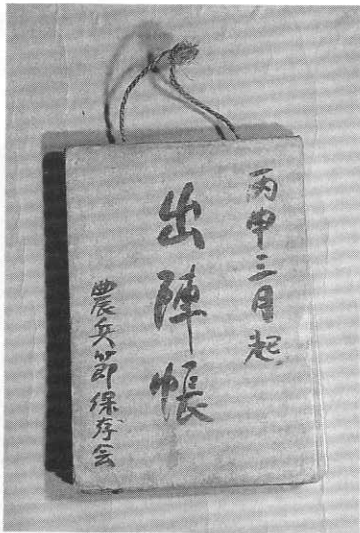 丙申三月起
出陣帳
農兵節保存会